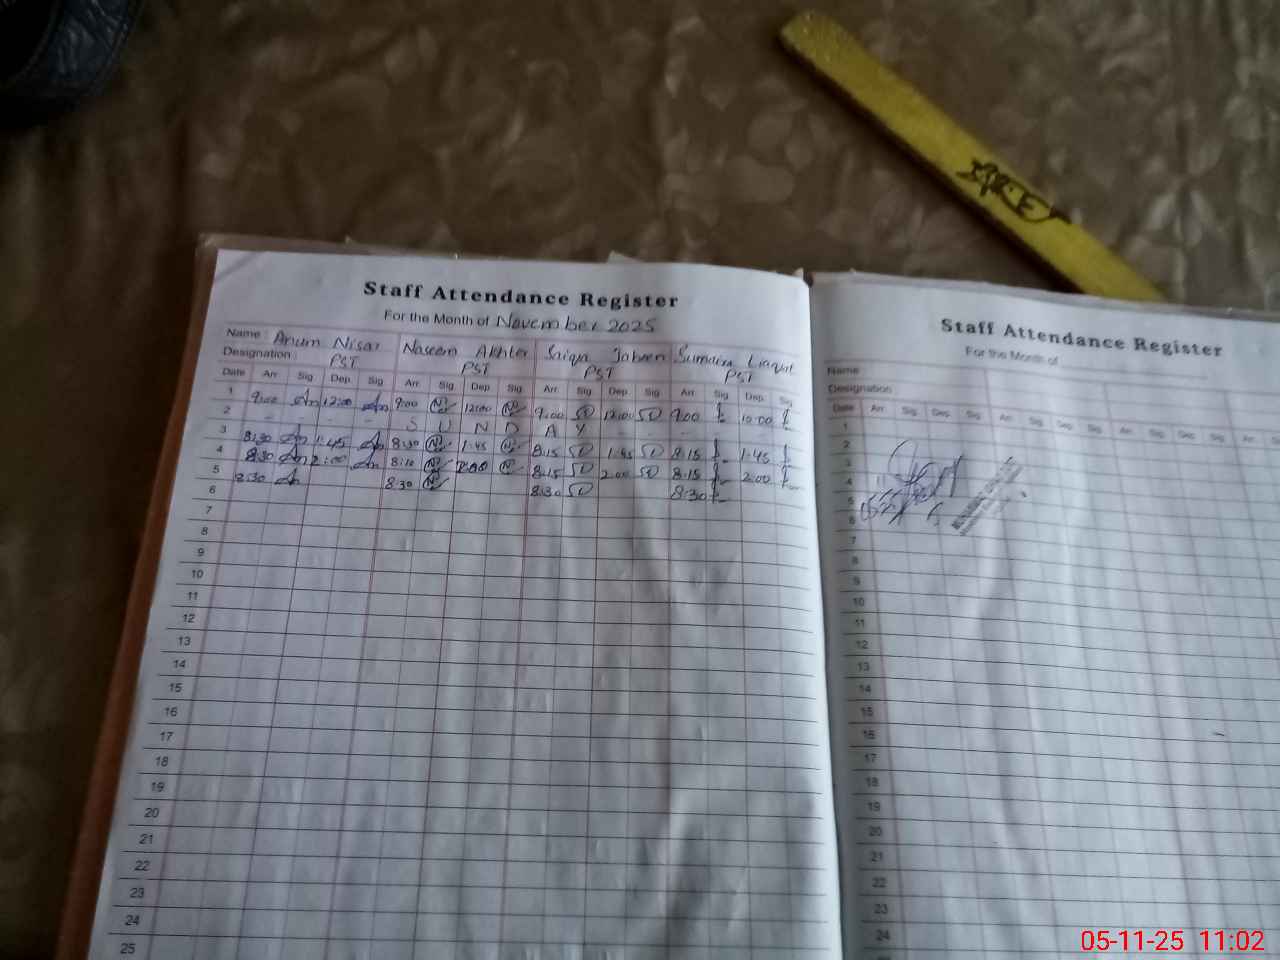 Staff Attendance Register
For the Month of November 2025
Name Anum Nisar Naseem Akhter Saiqa Jabeen Sumaira Liaqat
Designation PST PST PST PST
Date Arr. Sig. Dep. Sig. Arr. Sig. Dep. Sig. Arr. Sig. Dep. Sig. Arr. Sig. Dep. Sig.
1 9:00 12:00 9:00 12:00 9:00 12:00 9:00 10:00
2 S U N D A Y
3 8:30 1:45 8:30 1:45 8:15 1:45 8:15 1:45
4 8:30 2:00 8:10 2:00 8:15 2:00 8:15 2:00
5 8:30 8:30 8:30 8:30
6
7
8
9
10
11
12
13
14
15
16
17
18
19
20
21
22
23
24
25
Staff Attendance Register
For the Month of
Name
Designation
Date Arr. Sig. Dep. Sig. Arr. Sig. Dep. Sig. Arr. Sig. Dep. Sig. Arr.
1
2
3
4
5
6
7
8
9
10
11
12
13
14
15
16
17
18
19
20
21
22
23
24
05-11-25 11:02